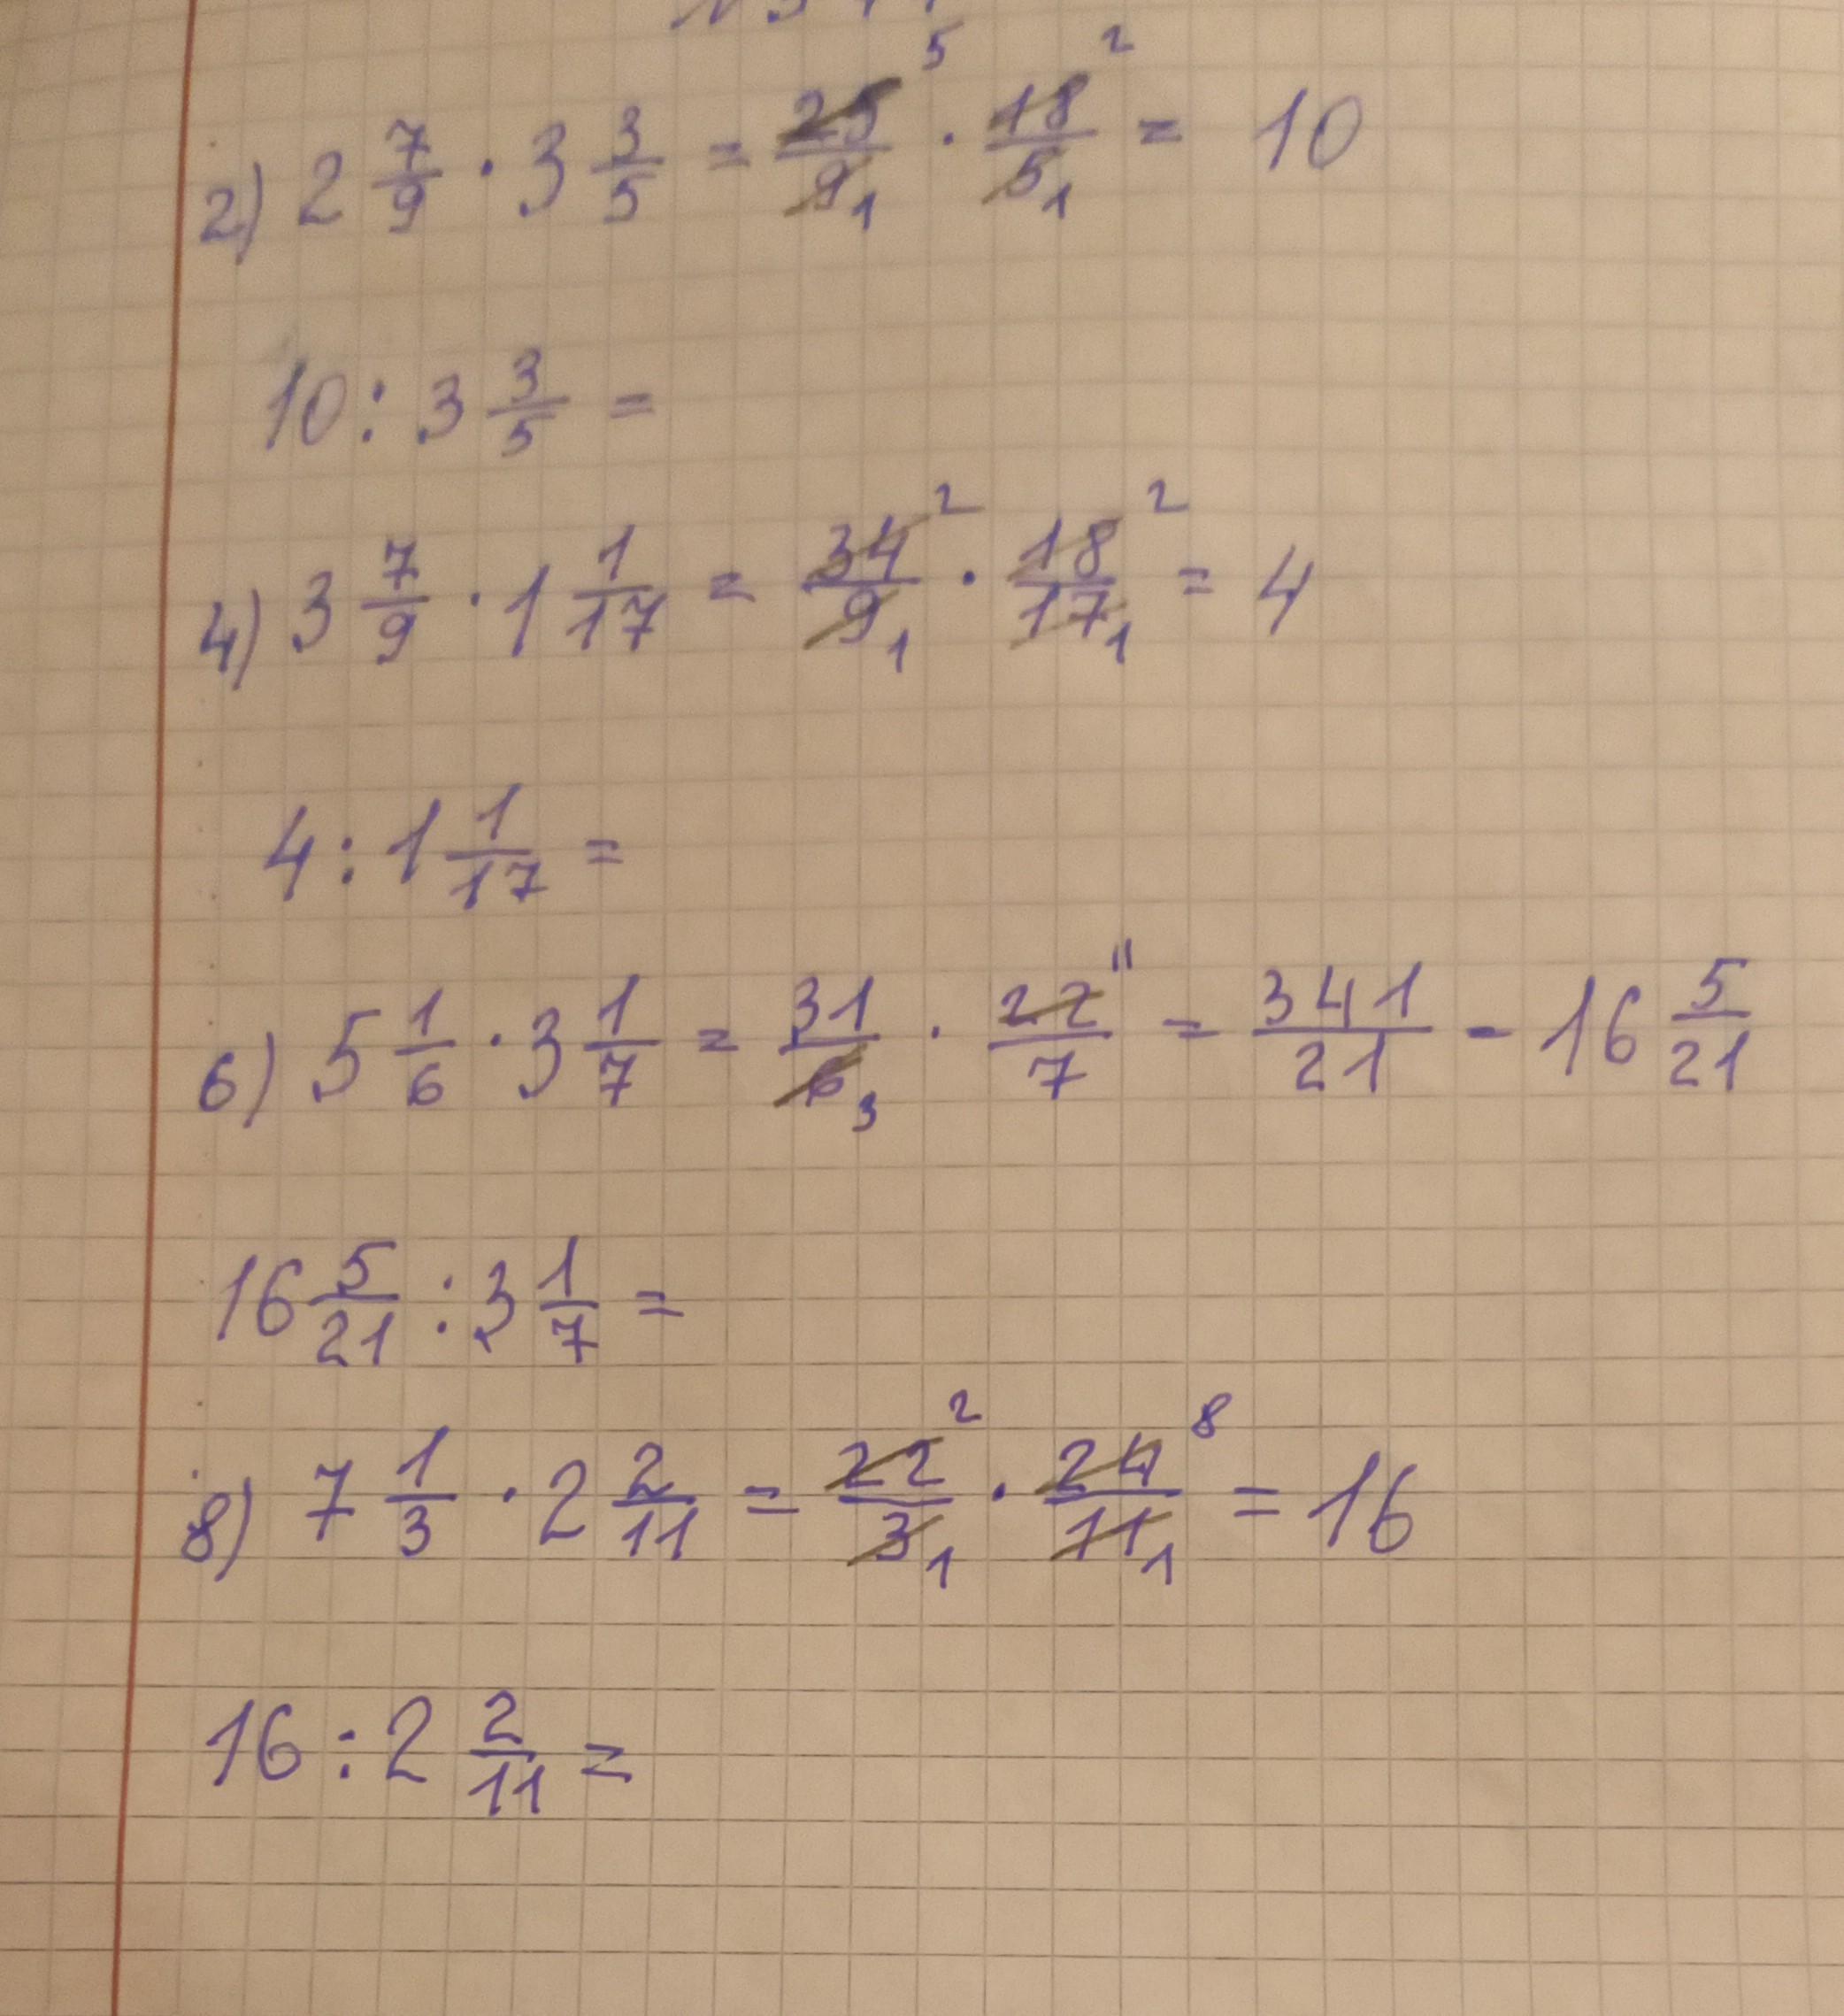 2) 2 7/9 · 3 3/5 = 25/9 · 18/5 = 10
10 : 3 3/5 =
4) 3 7/9 · 1 1/17 = 34/9 · 18/17 = 4
4 : 1 1/17 =
6) 5 1/6 · 3 1/7 = 31/6 · 22/7 = 341/21 = 16 5/21
16 5/21 : 3 1/7 =
8) 7 1/3 · 2 2/11 = 22/3 · 24/11 = 16
16 : 2 2/11 =